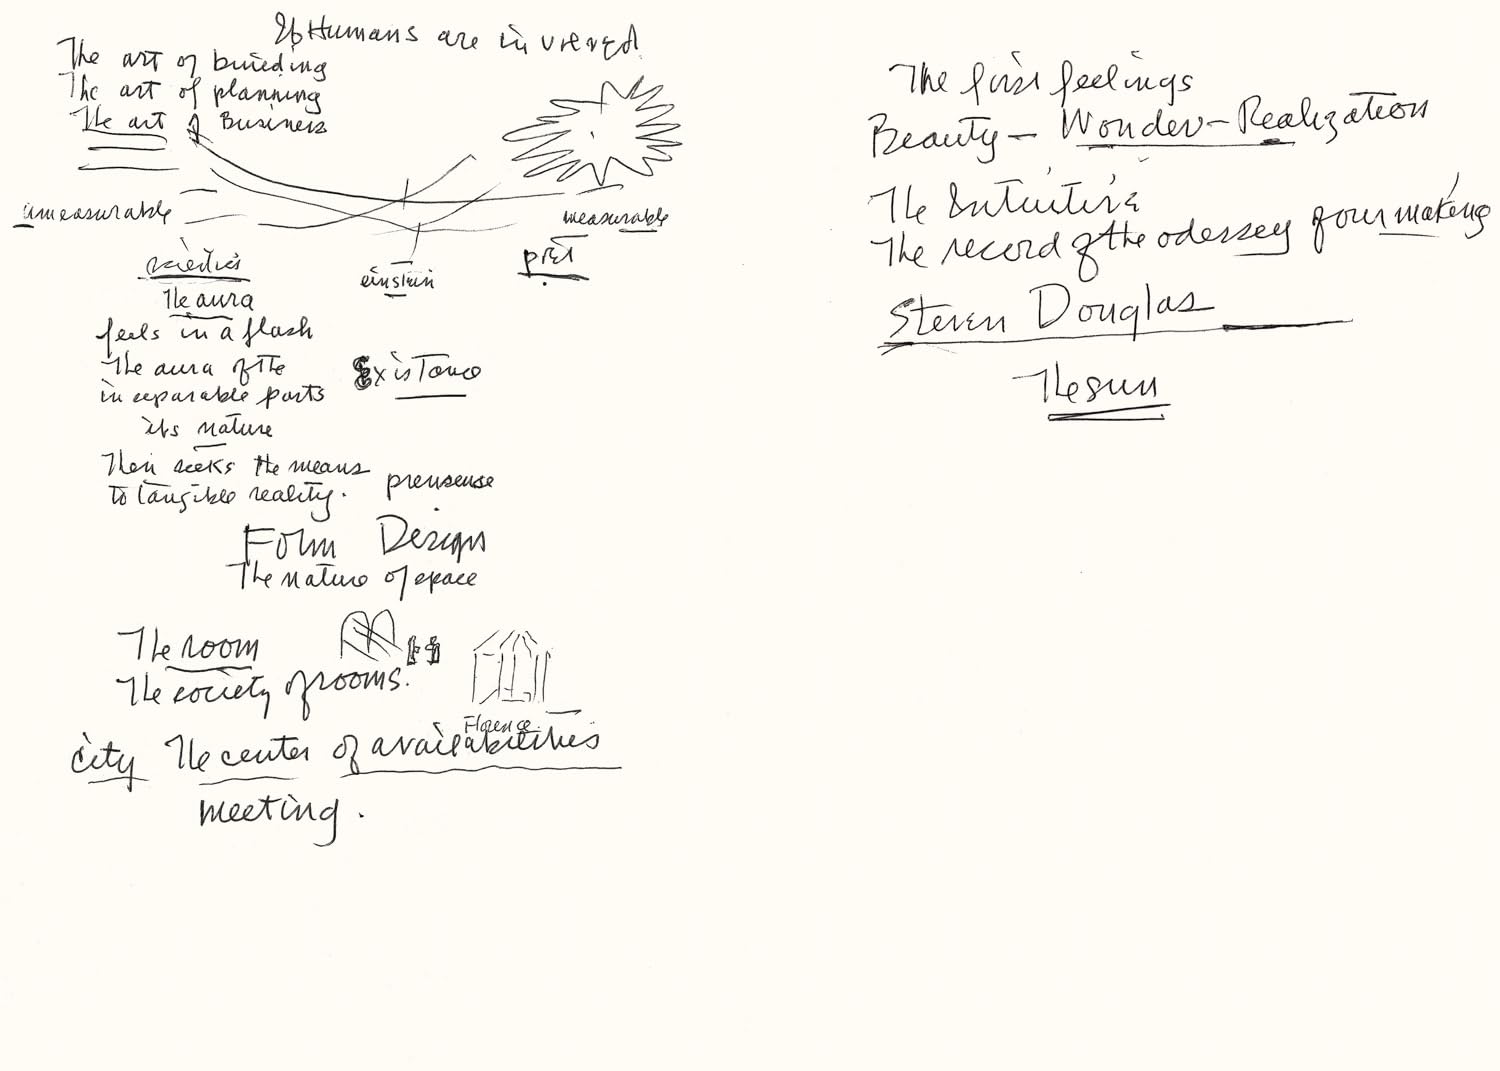 If Humans are involved
The art of building
The art of planning
The art of Business
unmeasurable
measurable
poet
einstein
The aura
feels in a flash
The aura of the
inseparable parts
Existence
its nature
Then seeks the means
to tangible reality.
Form Design
The nature of space
The room
The society of rooms.
Florence
city The center of availabilities
meeting.
The first feelings
Beauty – Wonder – Realization
The Intuitive
The record of the odessey of our making
Steven Douglas
The sun